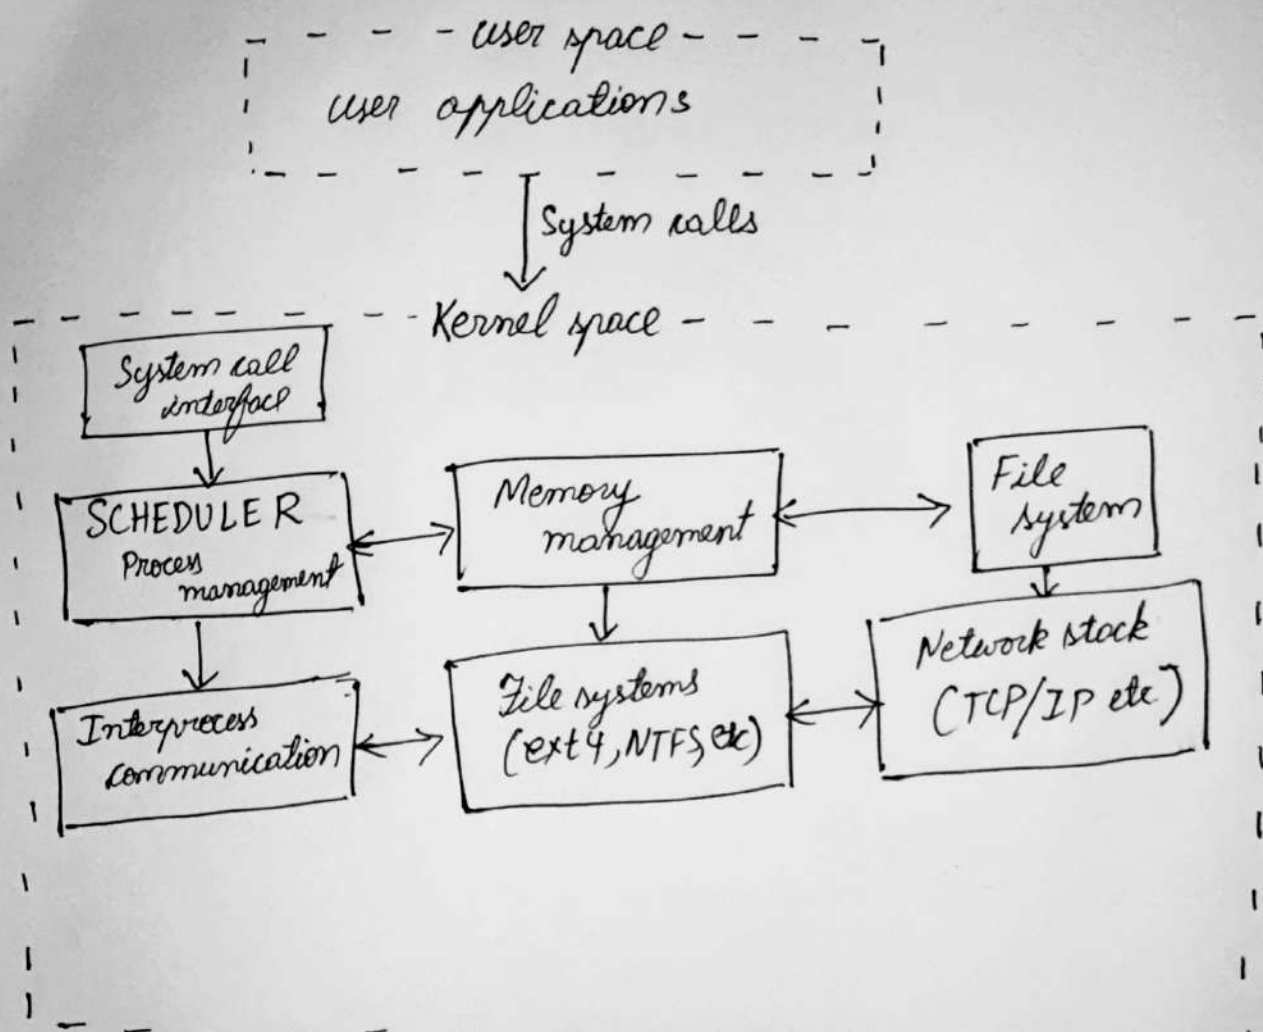 user space
user applications
System calls
Kernel space
System call
interface
SCHEDULER
Process
management
Memory
management
File
system
Interprocess
communication
File systems
(ext4, NTFS, etc)
Network stack
(TCP/IP etc)